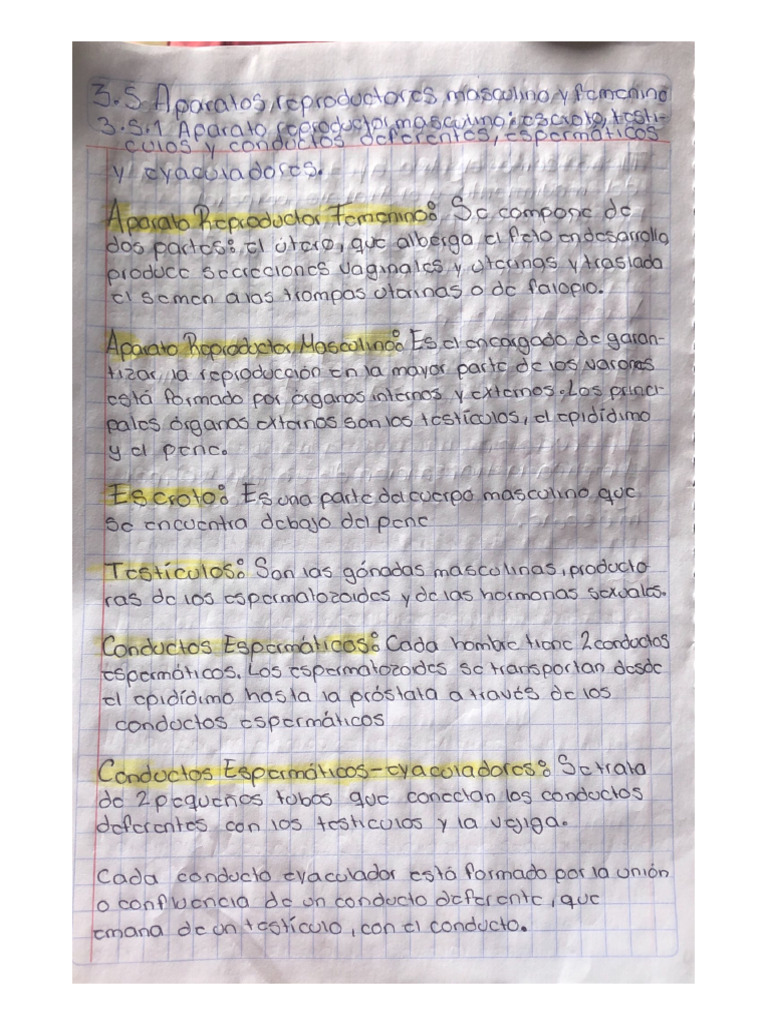 3.5 Aparatos reproductores masculino y femenino
3.5.1 Aparato reproductor masculino: escroto, testi-
culos y conductos deferentes, espermáticos
y eyaculadores.
Aparato Reproductor Femenino: Se compone de
dos partes: el útero, que alberga el feto en desarrollo
produce secreciones vaginales y uterinas y traslada
el semen a las trompas uterinas o de falopio.
Aparato Reproductor Masculino: Es el encargado de garan-
tizar, la reproducción en la mayor parte de los varones
está formado por órganos internos y externos. Los princi-
pales órganos externos son los testículos, el epidídimo
y el pene.
Escroto: Es una parte del cuerpo masculino que
se encuentra debajo del pene
Testículos: Son las gónadas masculinas, producto
ras de los espermatozoides y de las hormonas sexuales.
Conductos Espermáticos: Cada hombre tiene 2 conductos
espermáticos. Los espermatozoides se transportan desde
el epidídimo hasta la próstata a través de los
conductos espermáticos
Conductos Espermáticos-eyaculadores: Se trata
de 2 pequeños tubos que conectan los conductos
deferentes con los testiculos y la vejiga.
Cada conducto eyaculador está formado por la unión
o confluencia de un conducto deferente, que
emana de un testículo, con el conducto.